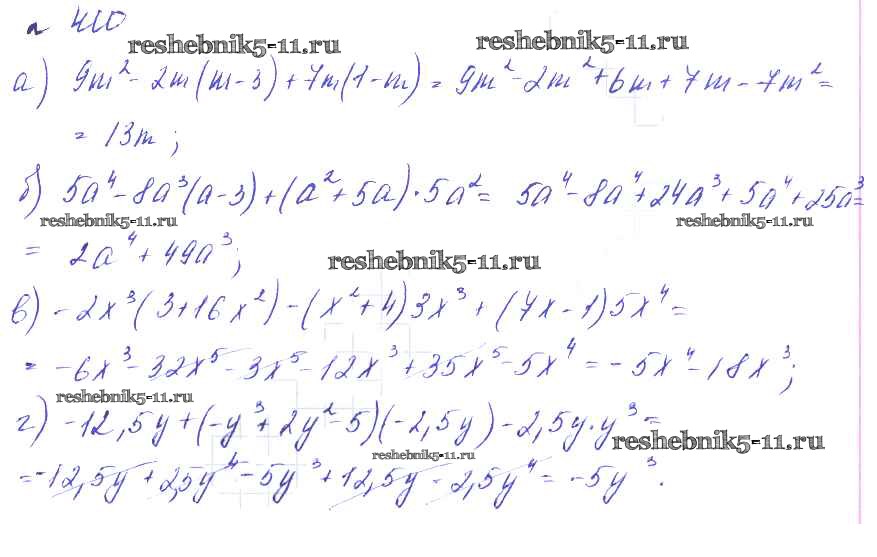 № 410
reshebnik5-11.ru reshebnik5-11.ru
а) 9m² - 2m(m-3) + 7m(1-m) = 9m² - 2m² + 6m + 7m - 7m² =
= 13m;
б) 5a⁴ - 8a³(a-3) + (a² + 5a) · 5a² = 5a⁴ - 8a⁴ + 24a³ + 5a⁴ + 25a³ =
reshebnik5-11.ru reshebnik5-11.ru
= 2a⁴ + 49a³;
reshebnik5-11.ru
в) -2x³(3+16x²) - (x²+4)3x³ + (7x-1)5x⁴ =
= -6x³ - 32x⁵ - 3x⁵ - 12x³ + 35x⁵ - 5x⁴ = -5x⁴ - 18x³;
reshebnik5-11.ru
г) -12,5y + (-y³ + 2y² - 5)(-2,5y) - 2,5y · y³ =
reshebnik5-11.ru
reshebnik5-11.ru
= -12,5y + 2,5y⁴ - 5y³ + 12,5y - 2,5y⁴ = -5y³.